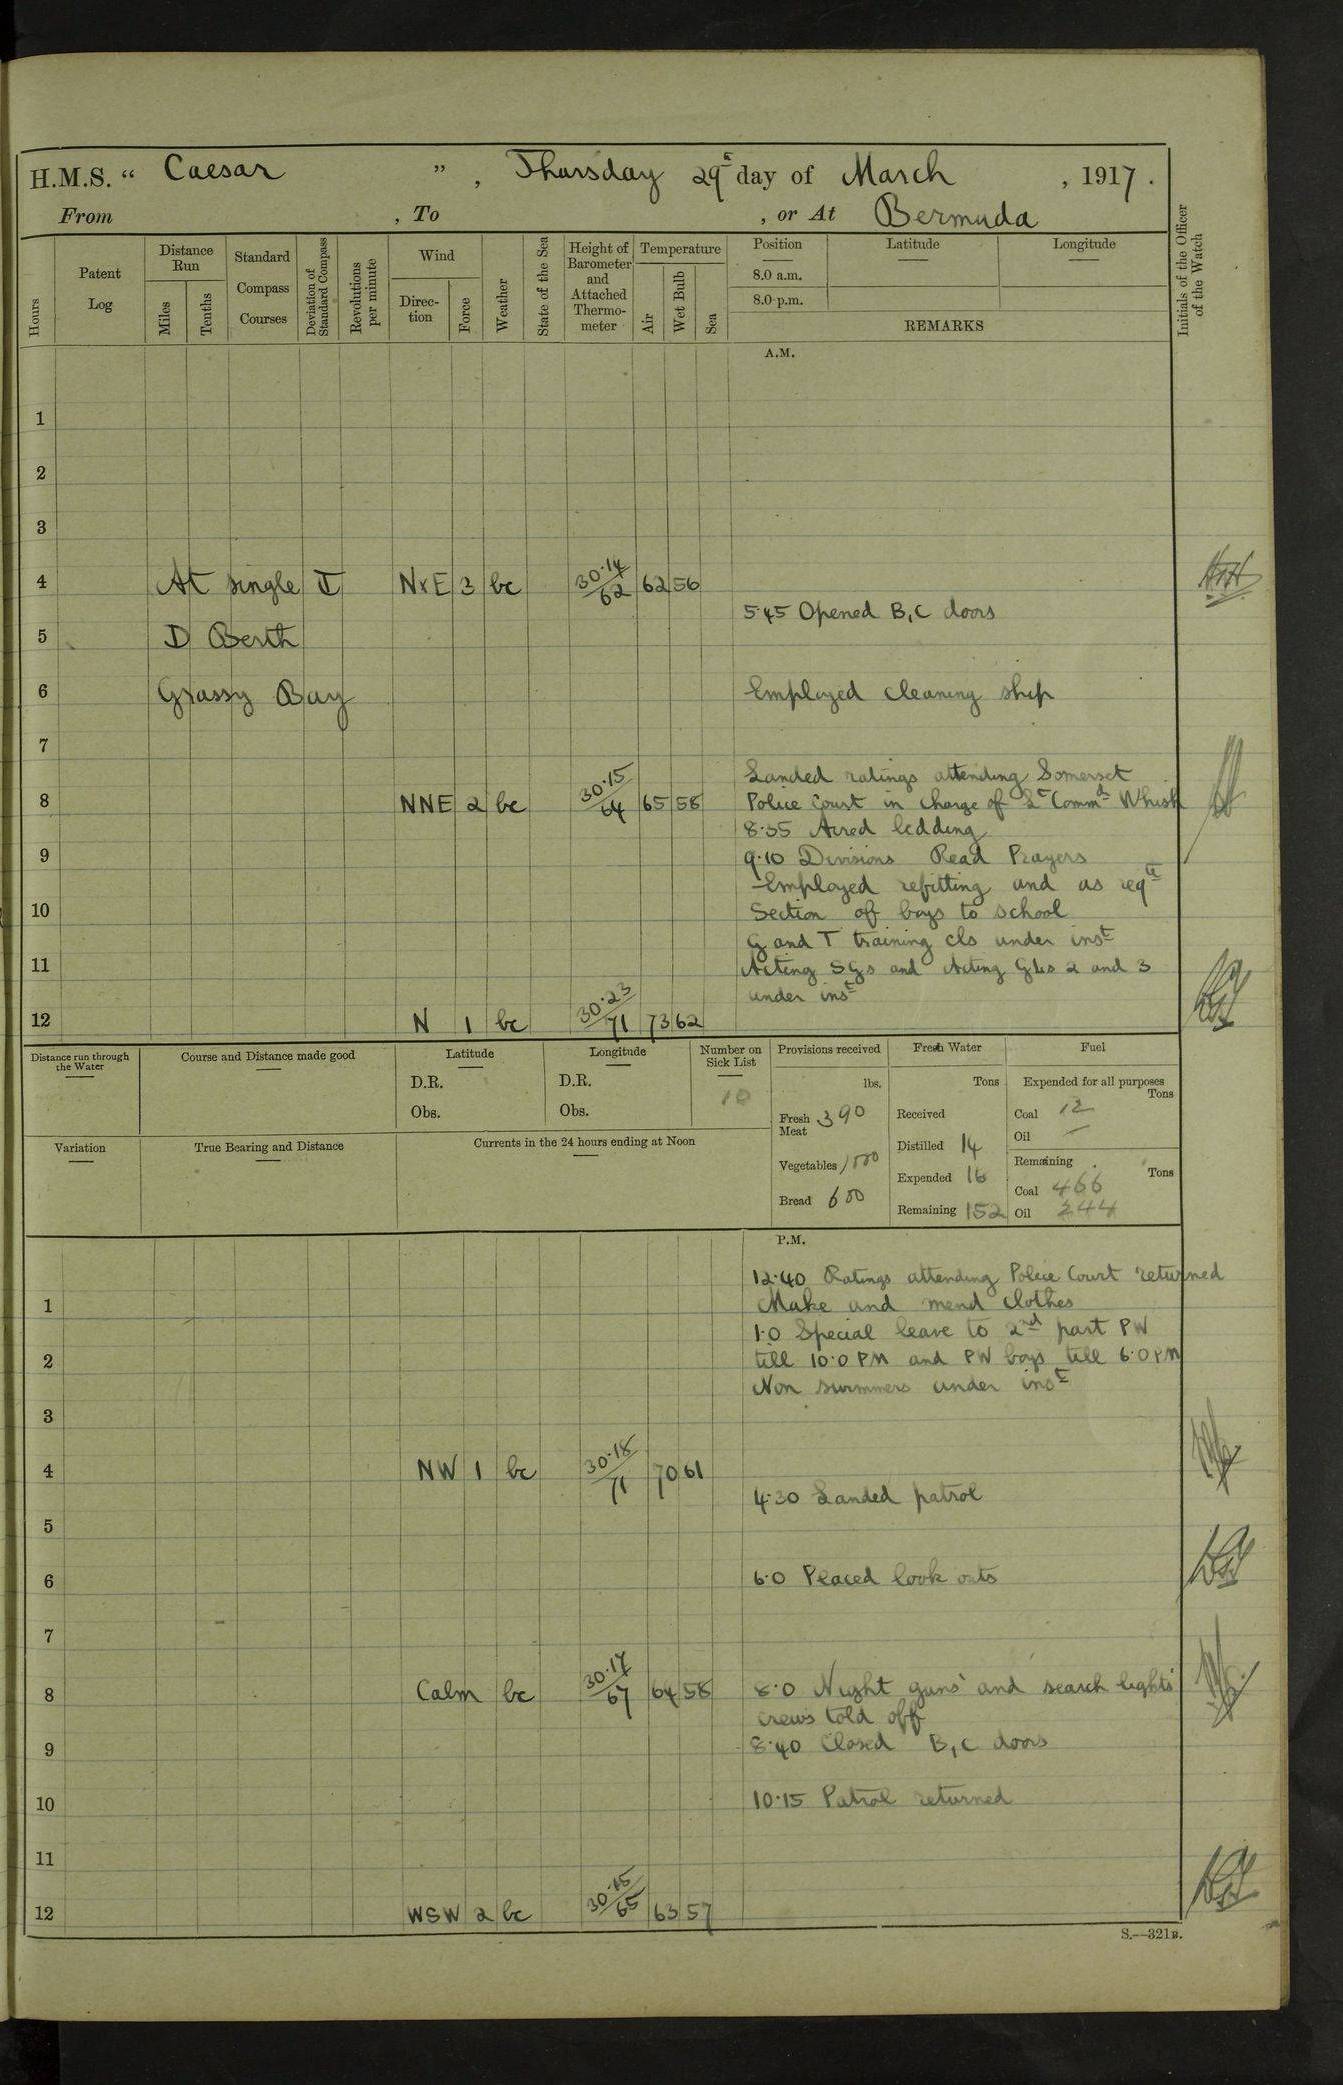 H.M.S. “ Caesar ” , Thursday 29th day of March , 1917 .
From , To , or At Bermuda
Hours
Patent Log
Distance Run
Miles
Tenths
Standard Compass Courses
Deviation of Standard Compass
Revolutions per minute
Wind
Direc-tion
Force
Weather
State of the Sea
Height of Barometer and Attached Thermo-meter
Temperature
Air
Wet Bulb
Sea
Position
8.0 a.m.
8.0 p.m.
Latitude
Longitude
REMARKS
Initials of the Officer of the Watch
A.M.
1
2
3
4 At single NxE 3 bc 30·14/62 62 56
5·45 Opened B, C doors
5 D Berth
6 Grassy Bay Employed cleaning ship
7
Landed ratings attending Somerset
8 NNE 2 bc 30·15/64 65 58 Police Court in charge of Lt Commd Whish
8·35 Aired bedding
9 9·10 Divisions Read Prayers
Employed refitting and as reqte
10 Section of boys to school
G and T training cls under inst
11 Acting SGs and Acting GLs 2 and 3
under inst
12 N 1 bc 30·23/71 73 62
Distance run through the Water
Course and Distance made good
Latitude
D.R.
Obs.
Longitude
D.R.
Obs.
Number on Sick List
10
Provisions received
lbs.
Fresh Meat 390
Vegetables 1000
Bread 600
Fresh Water
Tons
Received
Distilled 14
Expended 16
Remaining 152
Fuel
Expended for all purposes
Tons
Coal 12
Oil —
Remaining
Tons
Coal 466
Oil 244
Variation
True Bearing and Distance
Currents in the 24 hours ending at Noon
P.M.
12·40 Ratings attending Police Court returned
1 Make and mend clothes
1·0 Special leave to 2nd part PW
2 till 10·0 PM and PW boys till 6·0 PM
Non swimmers under inst
3
4 NW 1 bc 30·18/71 70 61
4·30 Landed patrol
5
6 6·0 Placed look outs
7
8 Calm bc 30·17/67 64 58 8·0 Night guns' and search lights'
crews told off
9 8·40 Closed B, C doors
10 10·15 Patrol returned
11
12 WSW 2 bc 30·15/65 63 57
S.—321B.